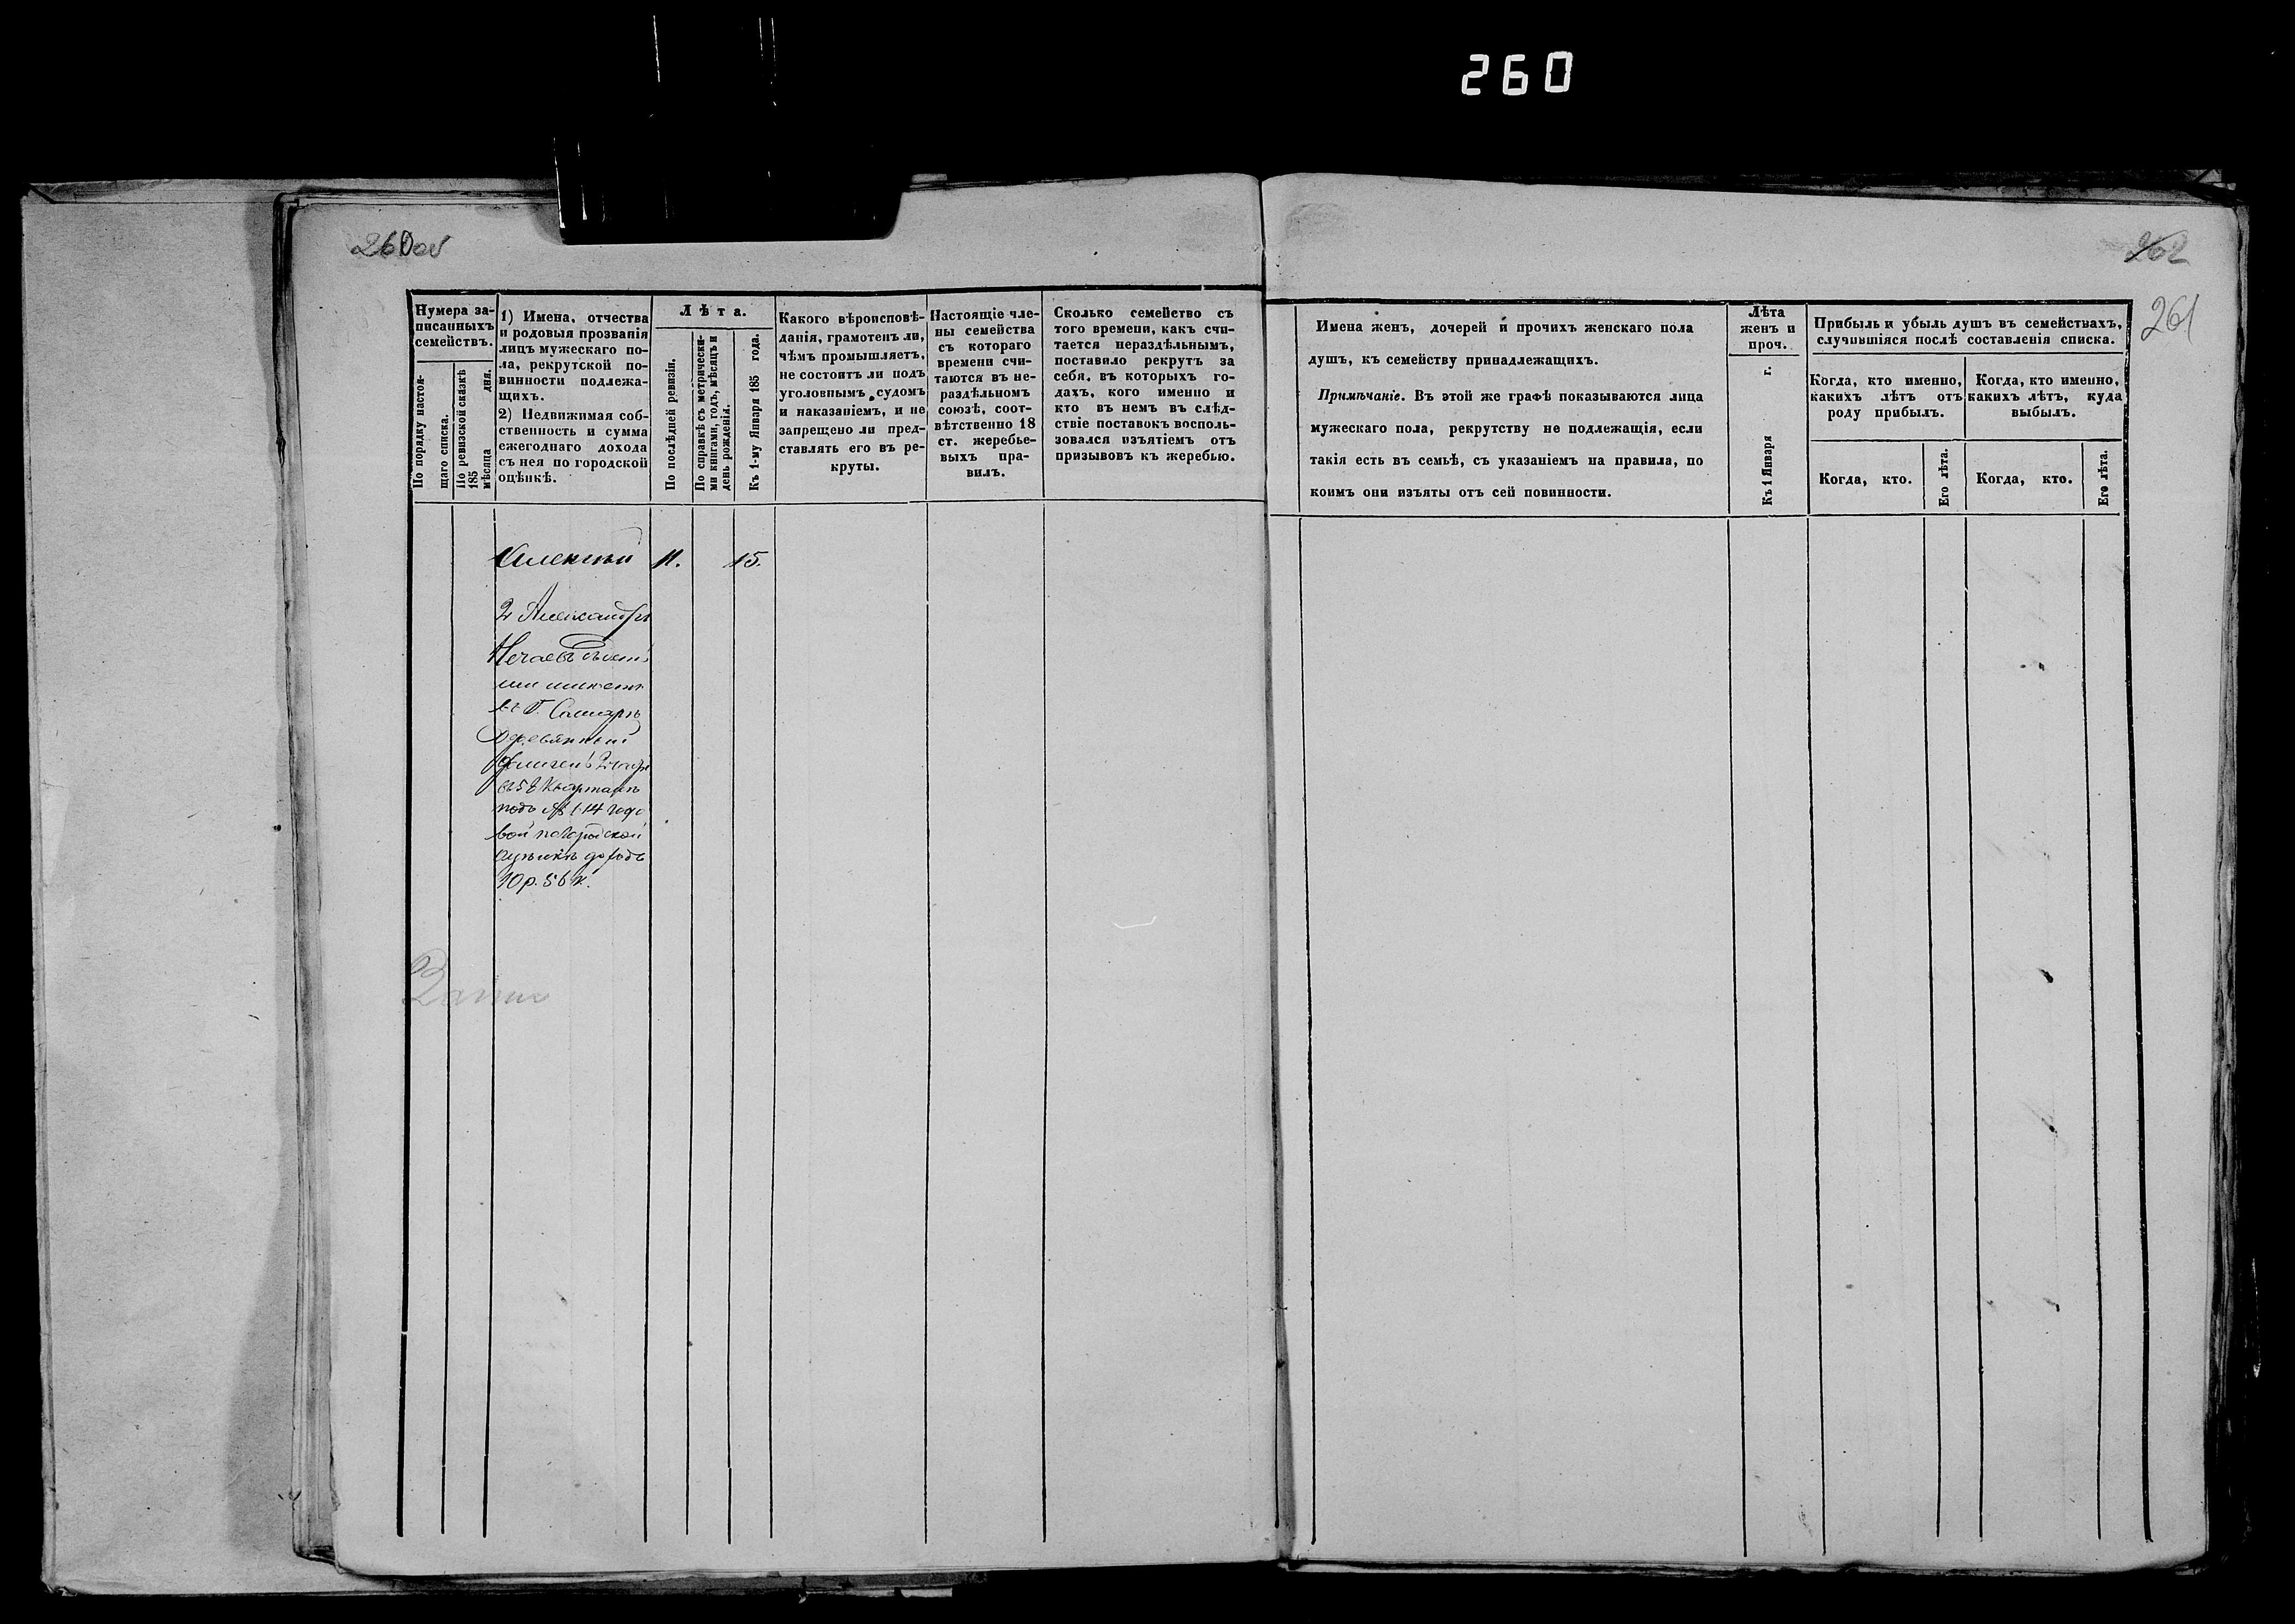 260
260об
262
261
Нумера за-
писанныхъ
семействъ.
По порядку настоя-
щаго списка.
По ревизской сказкѣ
185 мѣсяца дня.
1) Имена, отчества
и родовыя прозванія
лицъ мужескаго по-
ла, рекрутской по-
винности подлежа-
щихъ.
2) Недвижимая соб-
ственность и сумма
ежегоднаго дохода
съ нея по городской
оцѣнкѣ.
Лѣта.
По послѣдней ревизіи.
По справкѣ съ метрически-
ми книгами, годъ, мѣсяцъ и
день рожденія.
Къ 1-му Января 185 года.
Какого вѣроисповѣ-
данія, грамотенъ ли,
чѣмъ промышляетъ,
не состоитъ ли подъ
уголовнымъ судомъ
и наказаніемъ, и не
запрещено ли пред-
ставлять его въ ре-
круты.
Настоящіе чле-
ны семейства
съ котораго
времени счи-
таются въ не-
раздѣльномъ
союзѣ, соот-
вѣтственно 18
ст. жеребье-
выхъ пра-
вилъ.
Сколько семейство съ
того времени, какъ счи-
тается нераздѣльнымъ,
поставило рекрутъ за
себя, въ которыхъ го-
дахъ, кого именно и
кто въ немъ въ слѣд-
ствіе поставокъ восполь-
зовался изъятіемъ отъ
призывовъ къ жеребью.
Имена женъ, дочерей и прочихъ женскаго пола
душъ, къ семейству принадлежащихъ.
Примѣчаніе. Въ этой же графѣ показываются лица
мужескаго пола, рекрутству не подлежащія, если
такія есть въ семьѣ, съ указаніемъ на правила, по
коимъ они изъяты отъ сей повинности.
Лѣта
женъ и
проч.
Къ 1 Января г.
Прибыль и убыль душъ въ семействахъ,
случившіяся послѣ составленія списка.
Когда, кто именно,
какихъ лѣтъ отъ
роду прибылъ.
Когда, кто именно,
какихъ лѣтъ, куда
выбылъ.
Когда, кто.
Его лѣта.
Когда, кто.
Его лѣта.
11. 15.
2 Александръ
Нечаевъ
имѣетъ
въ Г. Самарѣ
деревянный
въ 5 Кварталѣ
подъ № 114 годо
вой по городской
оцѣнкѣ доходъ
10 р. 56 к.